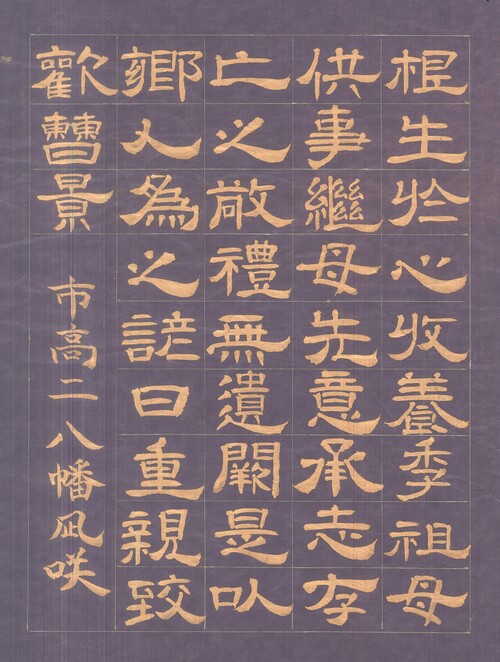 根生於心收養季祖母
供事繼母先意承志存
亡之敬禮無遺闕是以
鄉人為之諺曰重親致
歡曹景
市高二八幡凪咲